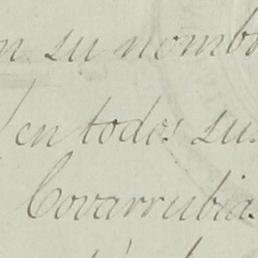 en su nombr
en todos sus
Covarrubias